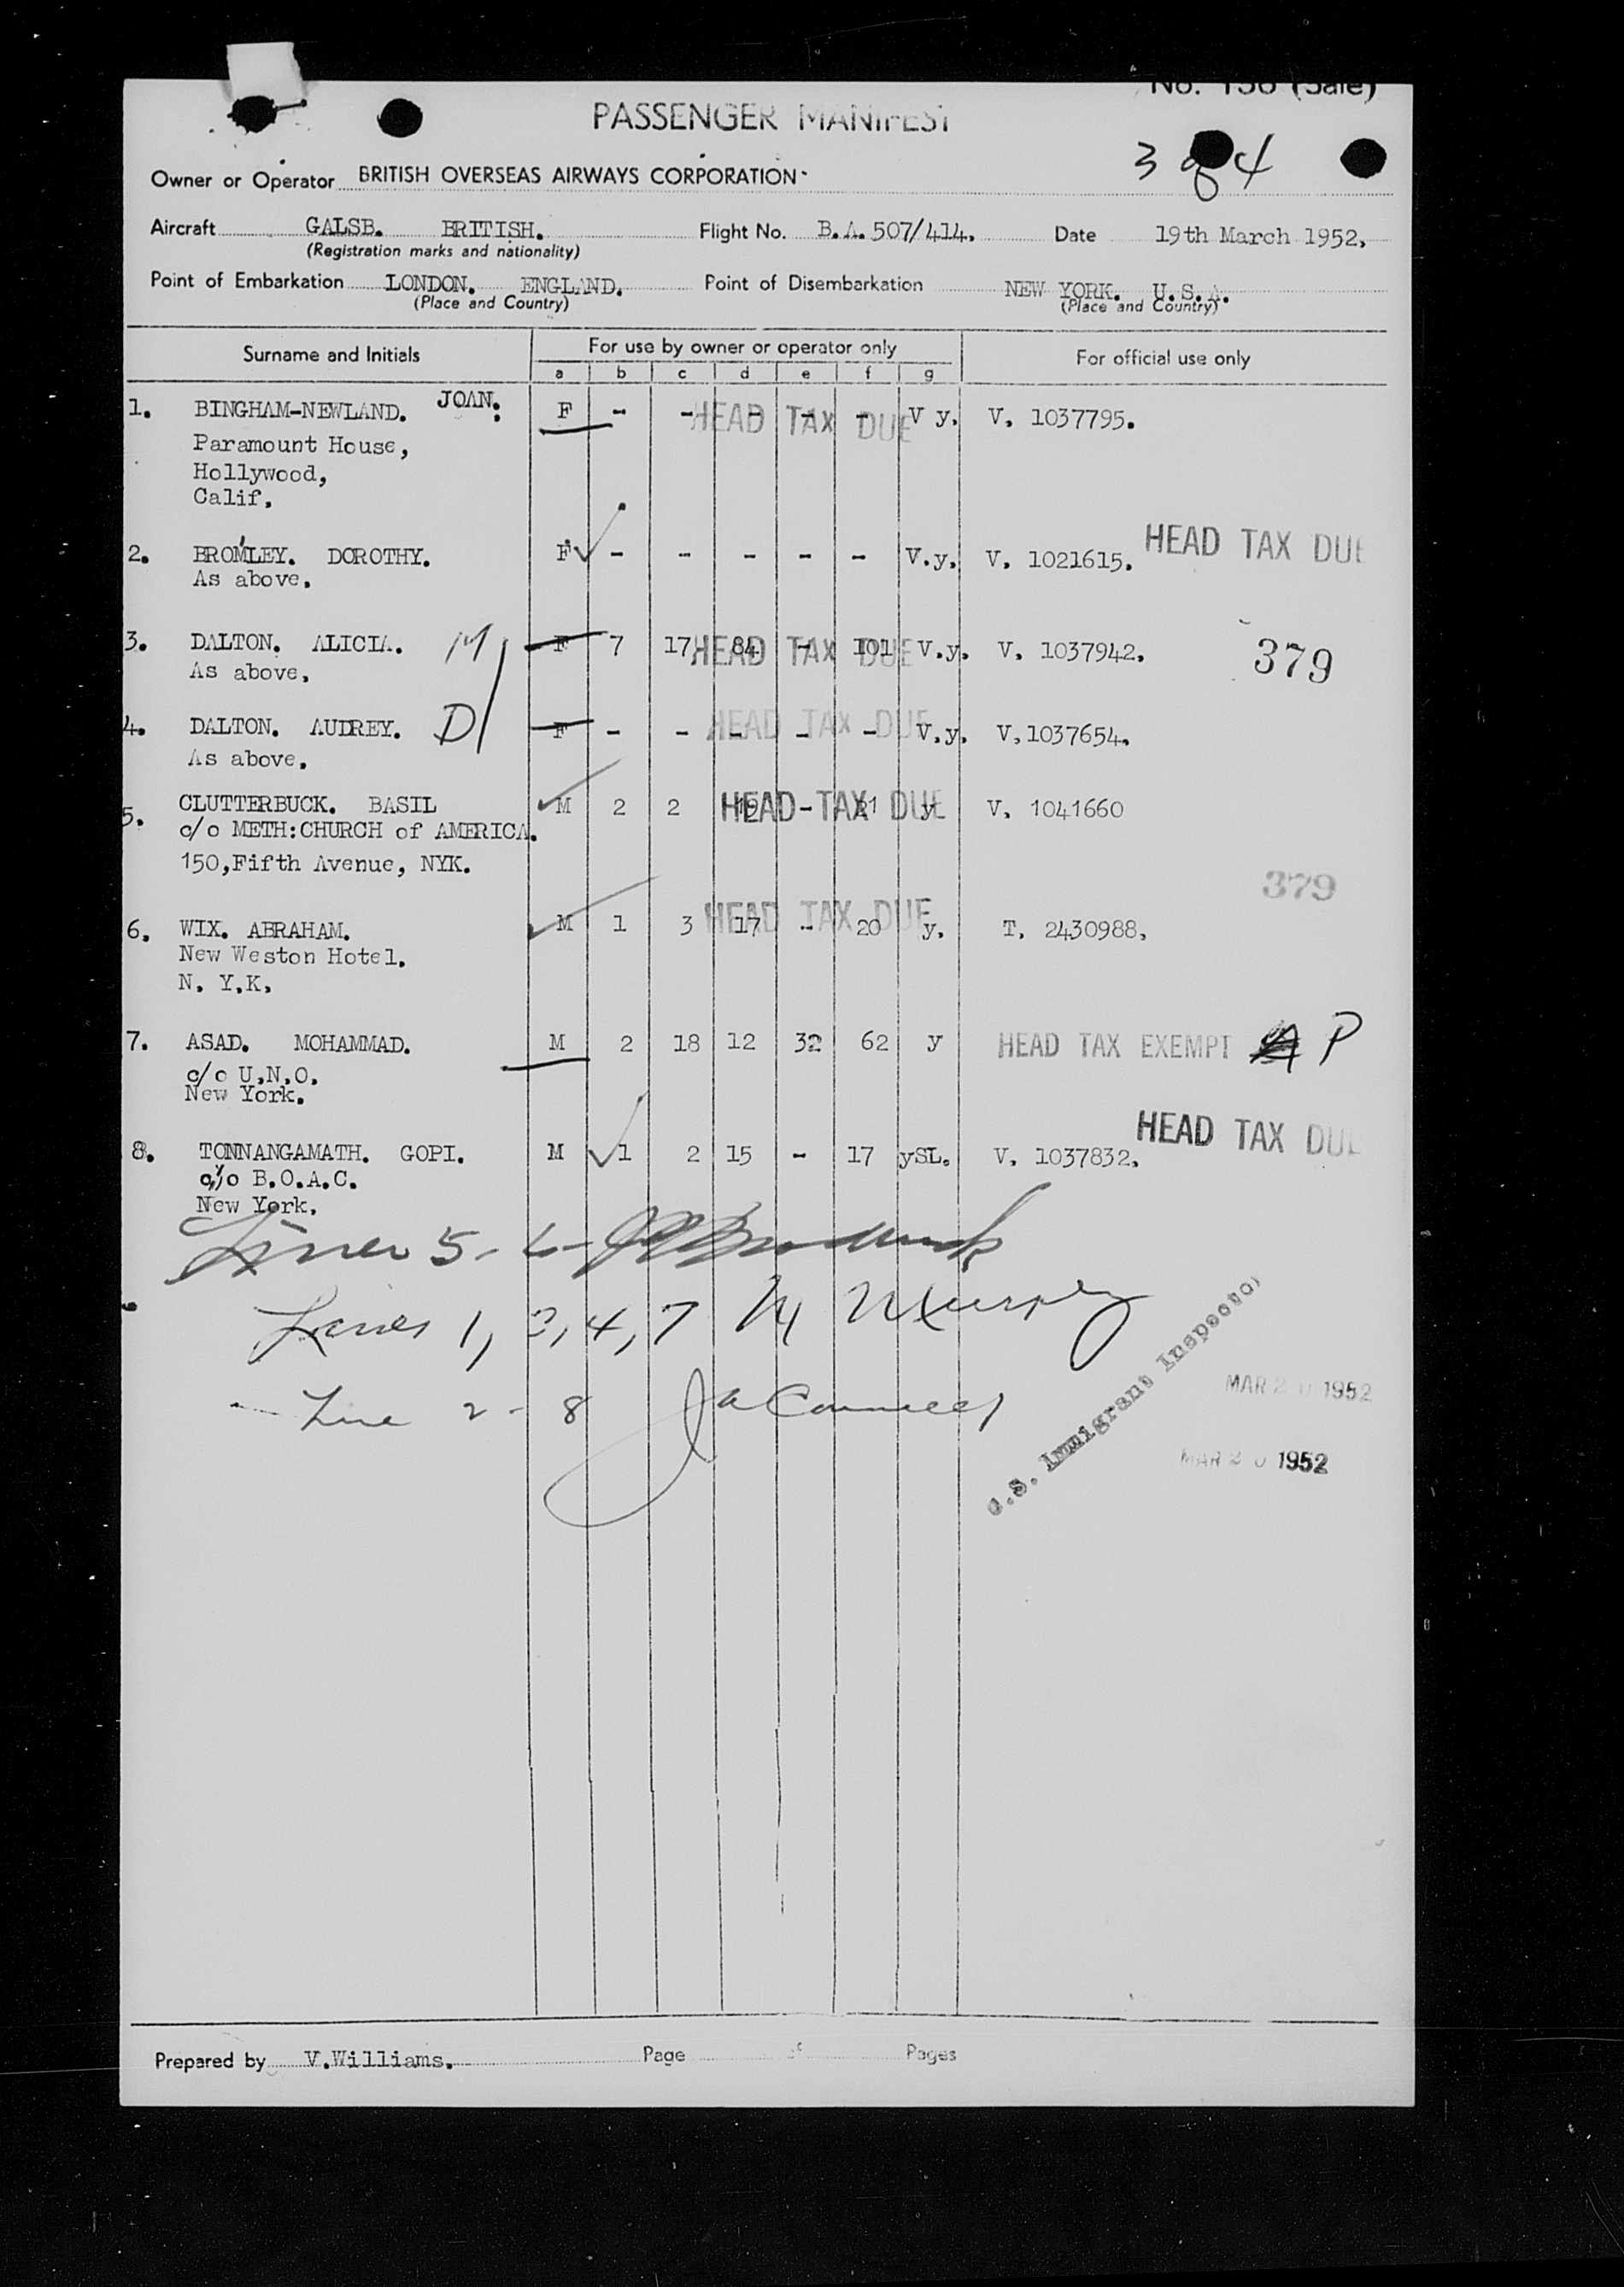 PASSENGER MANIFEST
3 of 4
Owner or Operator BRITISH OVERSEAS AIRWAYS CORPORATION
Aircraft GALSB. BRITISH. Flight No. B.A.507/414. Date 19th March 1952.
(Registration marks and nationality)
Point of Embarkation LONDON. ENGLAND. Point of Disembarkation NEW YORK. U.S.A.
(Place and Country) (Place and Country)
Surname and Initials For use by owner or operator only For official use only
a b c d e f g
1. BINGHAM-NEWLAND. JOAN. F - - - - - V y. V. 1037795.
HEAD TAX DUE
Paramount House,
Hollywood,
Calif.
2. BROMLEY. DOROTHY. F - - - - - V.y. V. 1021615. HEAD TAX DUE
As above.
3. DALTON. ALICIA. M F 7 17 84 - 101 V.y. V. 1037942. 379
HEAD TAX DUE
As above.
4. DALTON. AUDREY. D F - - - - - V.y. V.1037654.
HEAD TAX DUE
As above.
5. CLUTTERBUCK. BASIL M 2 2 19 - 21 y V. 1041660
HEAD TAX DUE
c/o METH:CHURCH of AMERICA.
150,Fifth Avenue, NYK.
379
6. WIX. ABRAHAM. M 1 3 17 - 20 y. T. 2430988.
HEAD TAX DUE
New Weston Hotel.
N. Y.K.
7. ASAD. MOHAMMAD. M 2 18 12 32 62 y HEAD TAX EXEMPT P
c/o U.N.O.
New York.
8. TONNANGAMATH. GOPI. M 1 2 15 - 17 ySL. V. 1037832. HEAD TAX DUE
c/o B.O.A.C.
New York.
Lines 5-6-
Lines 1, 3, 4, 7 M Murphy
Line 2 - 8
U.S. Immigrant Inspector
MAR 20 1952
MAR 20 1952
Prepared by V.Williams. Page of Pages